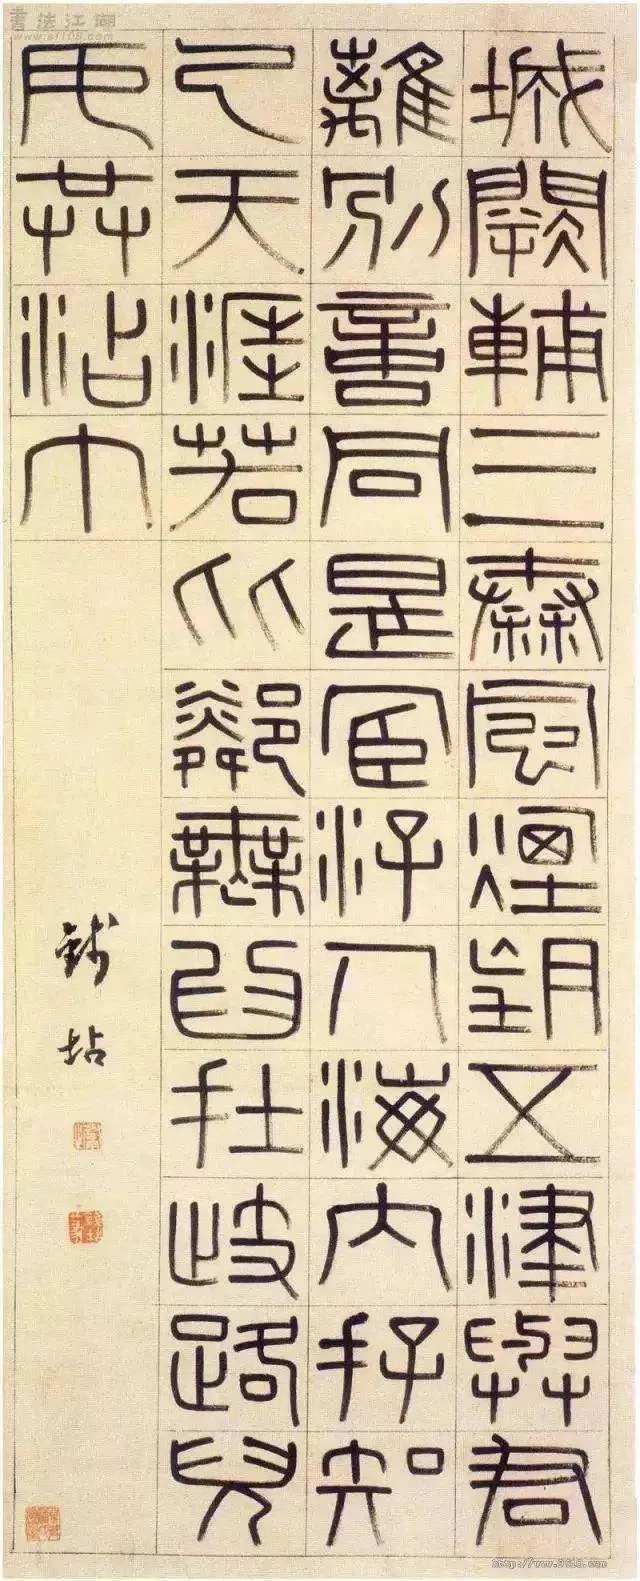 書法江湖
www.sf108.com
城闕輔三秦風煙望五津與君
離別意同是宦汓人海內存知
己天涯若比鄰無爲在歧路兒
女共沾巾
錢坫
http://www.9610.com